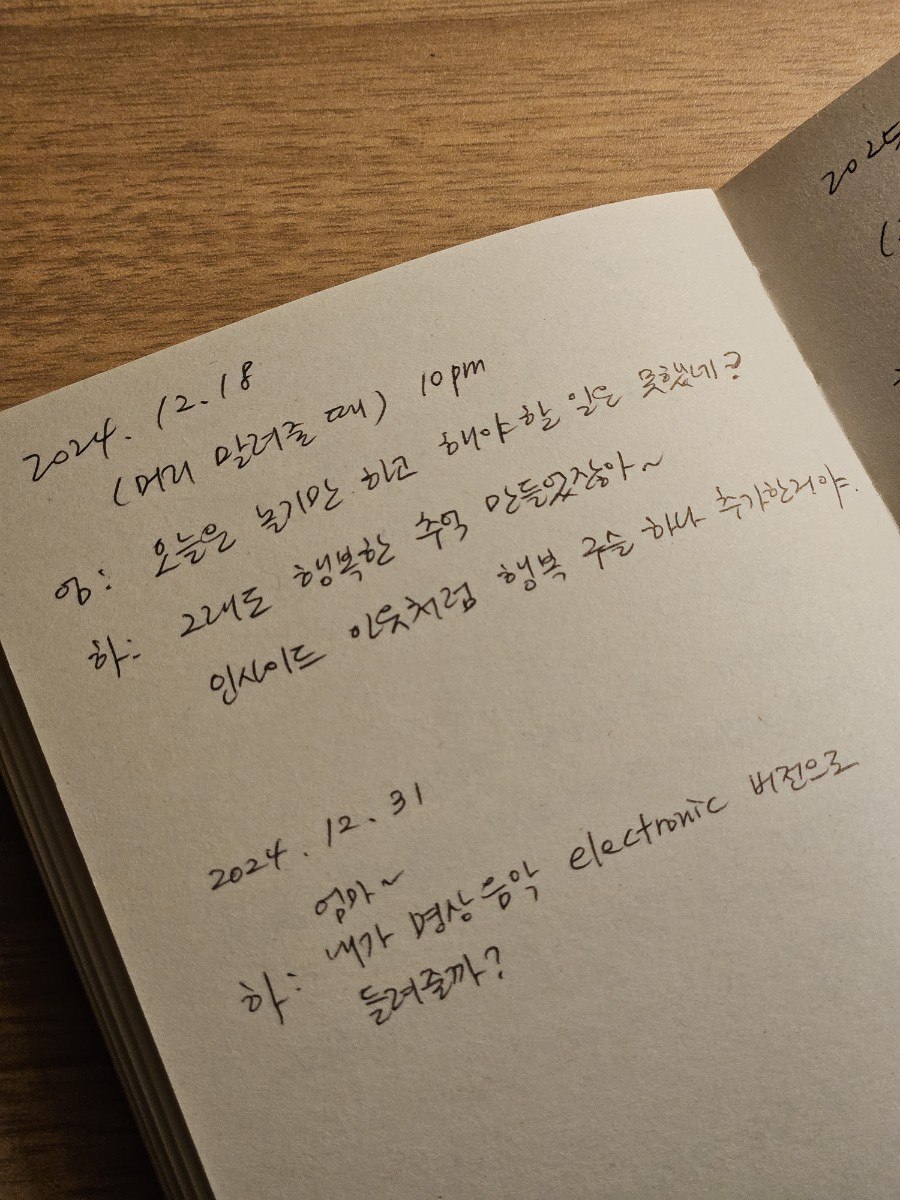 2024. 12. 18
(머리 말려줄 때) 10pm
엄: 오늘은 놀기만 하고 해야할 일은 못했네?
하: 그래도 행복한 추억 만들었잖아~
인사이드 아웃처럼 행복 구슬 하나 추가한거야.
2024. 12. 31
엄마~
하: 내가 명상음악 electronic 버전으로
들려줄까?
2025
(